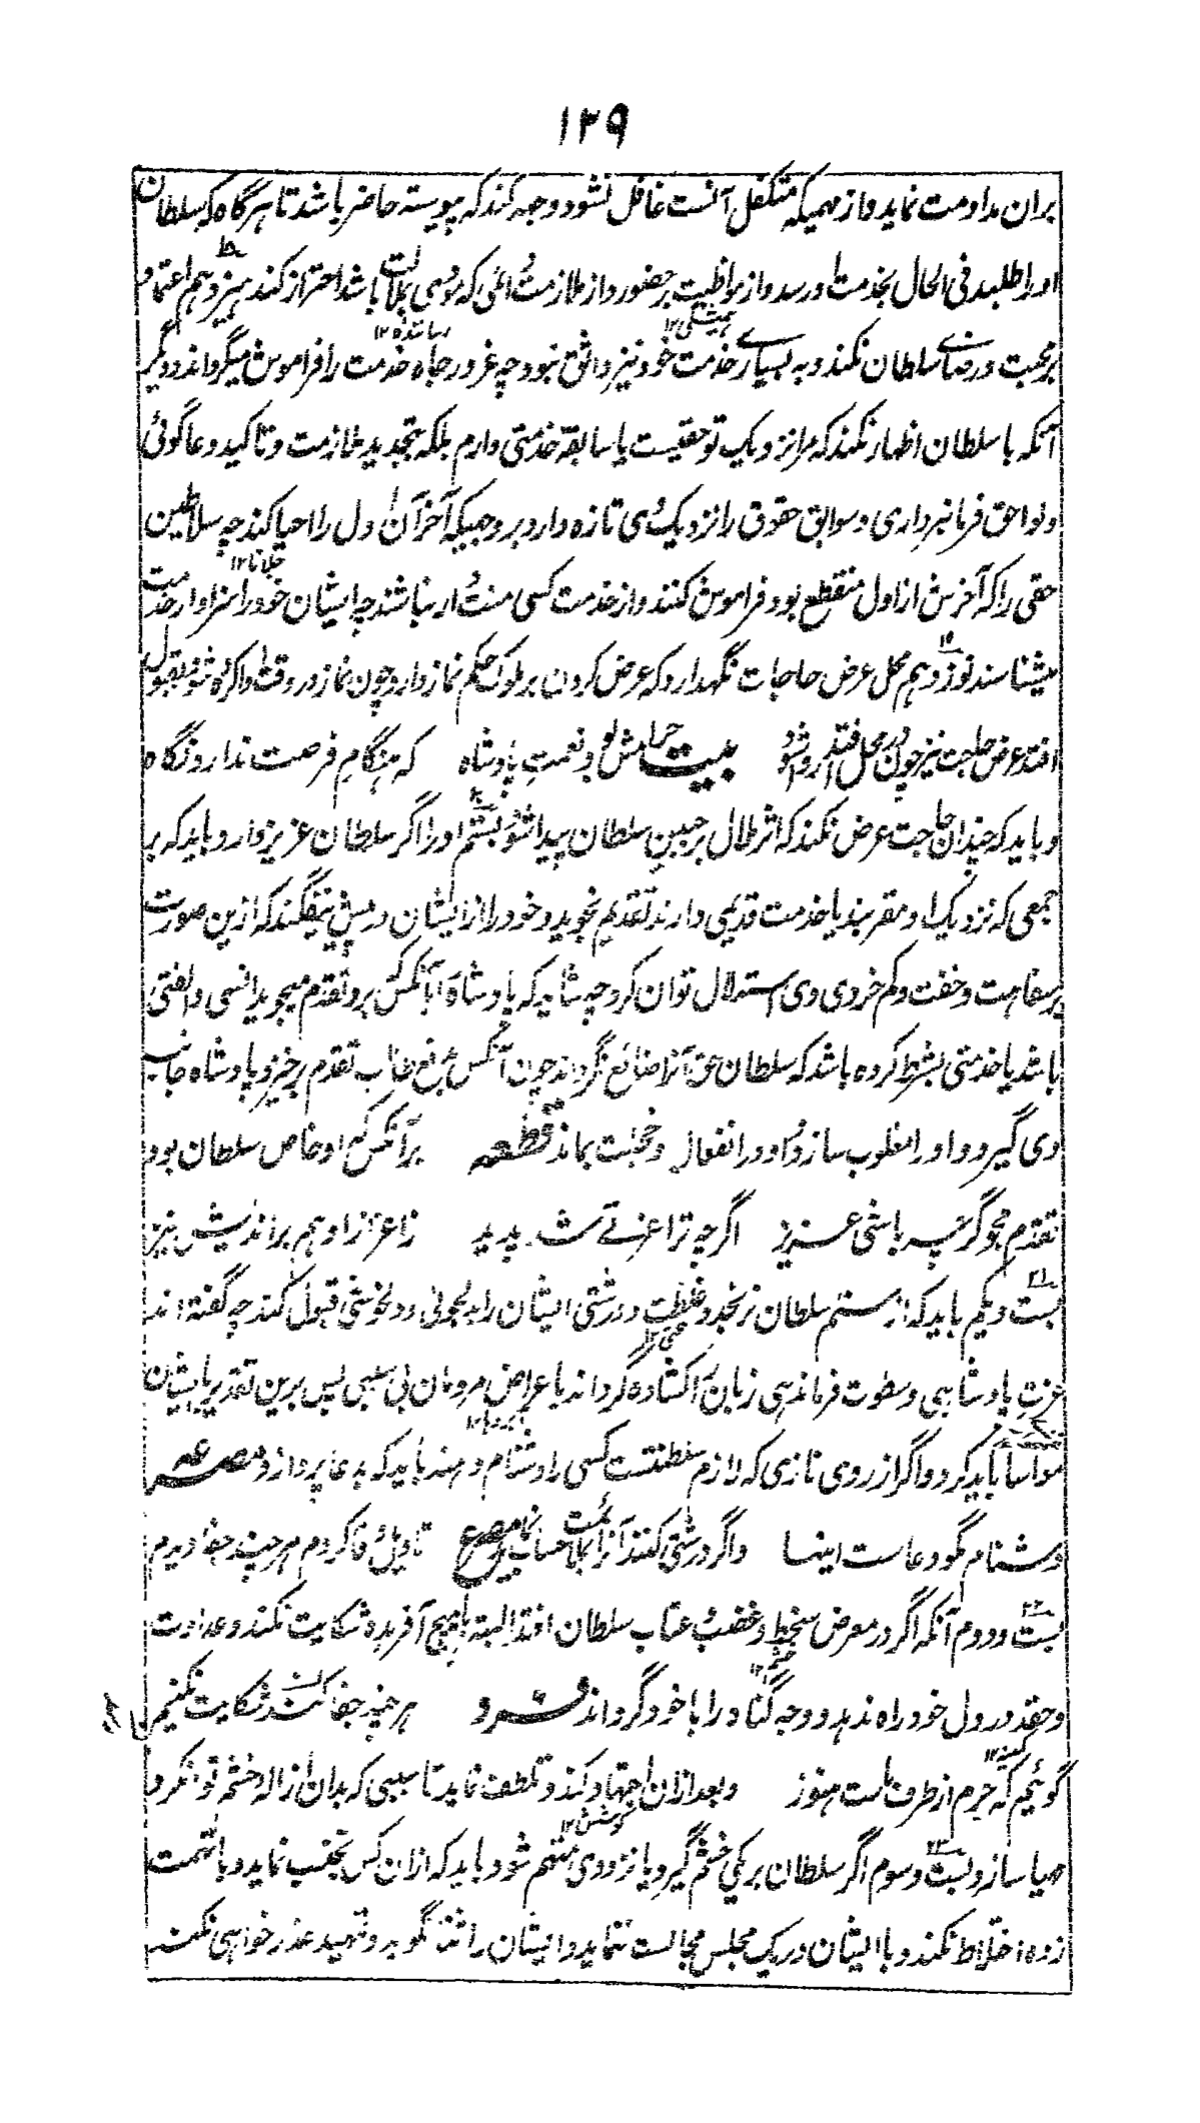 ۱۳۹
بران مداومت نماید و از مهمیکه متکفل آنست غافل نشود و جهد کند که پیوسته حاضر باشد تا هرگاه که سلطان
او را طلبد فی الحال بخدمت او رسد و از مواظبت بر حضور و از ملازمت المی که مودی بملالت باشد احتراز کند هیزدهم اعتماد
بر محبت و رضای سلطان نکند و به بسیاری خدمت خود نیز واثق نبود چه غرور جاه خدمت را فراموش میگرداند و دیگر
آنکه با سلطان اظهار نکند که مرا نزدیک تو حقیست یا سابقه خدمتی دارم بلکه بتجدید ملازمت و تاکید دعاگوئی
و لواحق فرمانبرداری و سوابق حقوق را نزدیک وی تازه دارد بر وجهیکه آخر آن اول را احیا کند چه سلاطین
حقی را که آخرش از اول منقطع بود فراموش کنند و از خدمت کسی منت دار نباشند چه ایشان خود را سزاوار خدمت
میشناسند نوزدهم محل عرض حاجات نگهدارد که عرض کردن بر ملوک حکم نماز دارد چون نماز در وقت ادا کرده شود بقبول
افتد عرض حاجت نیز چون در محل افتد روا شود بیت حرامش بود نعمت پادشاه که هنگام فرصت ندارد نگاه
و باید که چندان حاجت عرض نکند که اثر ملال بر جبین سلطان پیدا شود بستم او را اگر سلطان عزیز دارد باید که بر
جمعی که نزدیک او مقربند یا خدمت قدیمی دارند تقدیم نجوید و خود را از ایشان در پیش نیفگند که ازین صورت
بر سفاهت و خفت و کم خردی وی استدلال توان کرد چه شاید که پادشاه را بآنکس که برو تقدم میجوید انسی و الفتی
باشد یا خدمتی بشرط کرده باشد که سلطان حق آنرا ضائع نگرداند چون آنکس بدفع طالب تقدم برخیزد پادشاه جانب
وی گیرد و او را مغلوب سازد و او در انفعال و خجلت بماند قطعه بر آنکس که او خاص سلطان بود
تقدم مجو گرچه باشی عزیز اگرچه ترا عزتے شد پدید ز اعزاز او هم براندیش نیز
بست و یکم باید که از ستم سلطان نرنجد و غلظت و درشتی ایشان را بدلجوئی و دلخوشی قبول کند چه گفته اند
عزت پادشاهی و سطوت فرماندهی زبان را کشاده گرداند باعراض مردمان بی سببی پس برین تقدیر بایشان
مواسا باید کرد و اگر از روی نازی که لازم سلطنتست کسی را دشنام دهند باید که بدعا پردازد مصرعه
دشنام مگو دعاست اینها و اگر درشتی کنند آنرا بملائمت حساب نماید مصرع تاویل وفا کردم هرچند جفا دیدم
بست و دوم آنکه اگر در معرض سخط و غضب و عتاب سلطان افتد البته با هیچ آفریده شکایت نکند و عداوت
و حقد در دل خود راه ندهد و وجه گناه را با خود گرداند فرد هرچند جفا کند شکایت نکنیم
گوئیم که جرم از طرف ماست هنوز و بعد ازان اجتهاد کند و تلطف نماید تا سببی که بدان ازاله خشم تواند کرد
مهیا سازد بست و سوم اگر سلطان بر یکی خشم گیرد یا نزد وی متهم شود باید که ازان کس تجنب نماید و با تهمت
زده اختلاط نکند و با ایشان در یک مجلس مجالست ننماید و ایشان را ثنا نگوید و تمهید عذر خواهی نکند